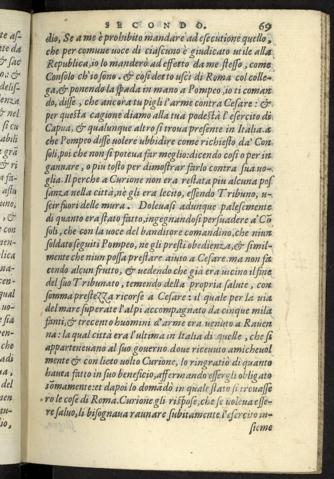 SECONDO. 69
dio, Se a me è prohibito mandare ad esecutione quello,
che per comune uoce di ciascuno è giudicato utile alla
Republica, io lo manderò ad effetto da me stesso, come
Consolo ch'io sono. & cosi detto uscì di Roma col colle-
ga, & ponendo la spada in mano a Pompeo, io ti coman-
do, disse, che ancora tu pigli l'arme contro Cesare: & e
per questa cagione diamo alla tua podestà l'esercito di
Capua, & qualunque altro si troua presente in Italia. a
che Pompeo disse uolere ubbidire come richiesto da' Con-
soli, poi che non si poteua far meglio: dicendo così o per in-
gannare, o piu tosto per dimostrar farlo contro sua uo-
glia. Il perche a Curione non era restata piu alcuna pos-
sanza nella città, nè gli era lecito, essendo Tribuno, u-
scir fuori delle mura. Doleuasi adunque palesemente
di quanto era stato fatto, ingegnandosi persuadere a' Cō
soli, che con la uoce del banditore comandino, che niun
soldato seguiti Pompeo, ne gli presti obedienza, & simil-
mente che niun possa prestare aiuto a Cesare. ma non fa
cendo alcun frutto, & uedendo che già era uicino il fine
del suo Tribunato, temendo della propria salute, con
somma prestezza ricorse a Cesare: il quale per la uia
del mare superate l'alpi accompagnato da cinque mila
fanti, & trecento huomini d'arme era uenuto a Rauen
na: la qual città era l'ultima in Italia di quelle, che si
apparteneuano al suo gouerno. doue riceuuto amicheuol
mente & con lieto uolto Curione, lo ringratiò di quanto
hauea fatto in suo beneficio, affermando essergli obligato
sōmamente: et dapoi lo domādò in quale stato si trouasse
ro le cose di Roma. Curione gli rispose, che se uoleua esse-
re saluo, li bisognaua raunare subitamente l'esercito in-
sieme